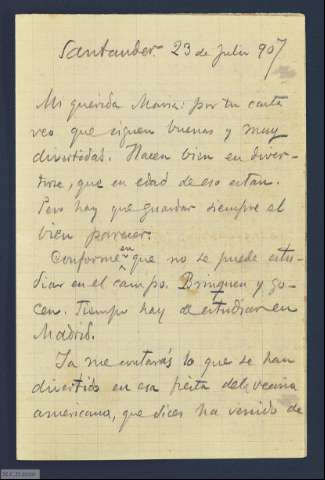 Santander 23 de Julio 907
Mi querida María: por tu carta
veo que siguen buenas y muy
divertidas. Hacen bien en diver-
tirse, que en edad de eso están.
Pero hay que guardar siempre el
bien parecer.
Conforme en que no se puede estu-
diar en el campo. Brinquen y go-
cen. Tiempo hay de estudiar en
Madrid.
Ya me contarás lo que se han
divertido en esa fiesta de la vecina
americana, que dices ha venido de